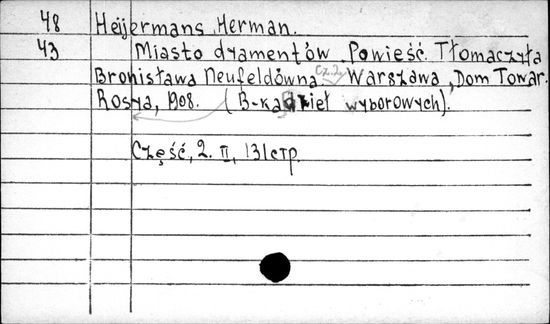 48 Heijermans, Herman.
43 Miasto dyamentów. Powieść. Tłomaczyła
Bronisława Neufeldówna. Cz. 2. Warszawa, Dom Towar.
Rosya, 1908. (B-ka dzieł wyborowych).
Część, 2. II, 131 стр.